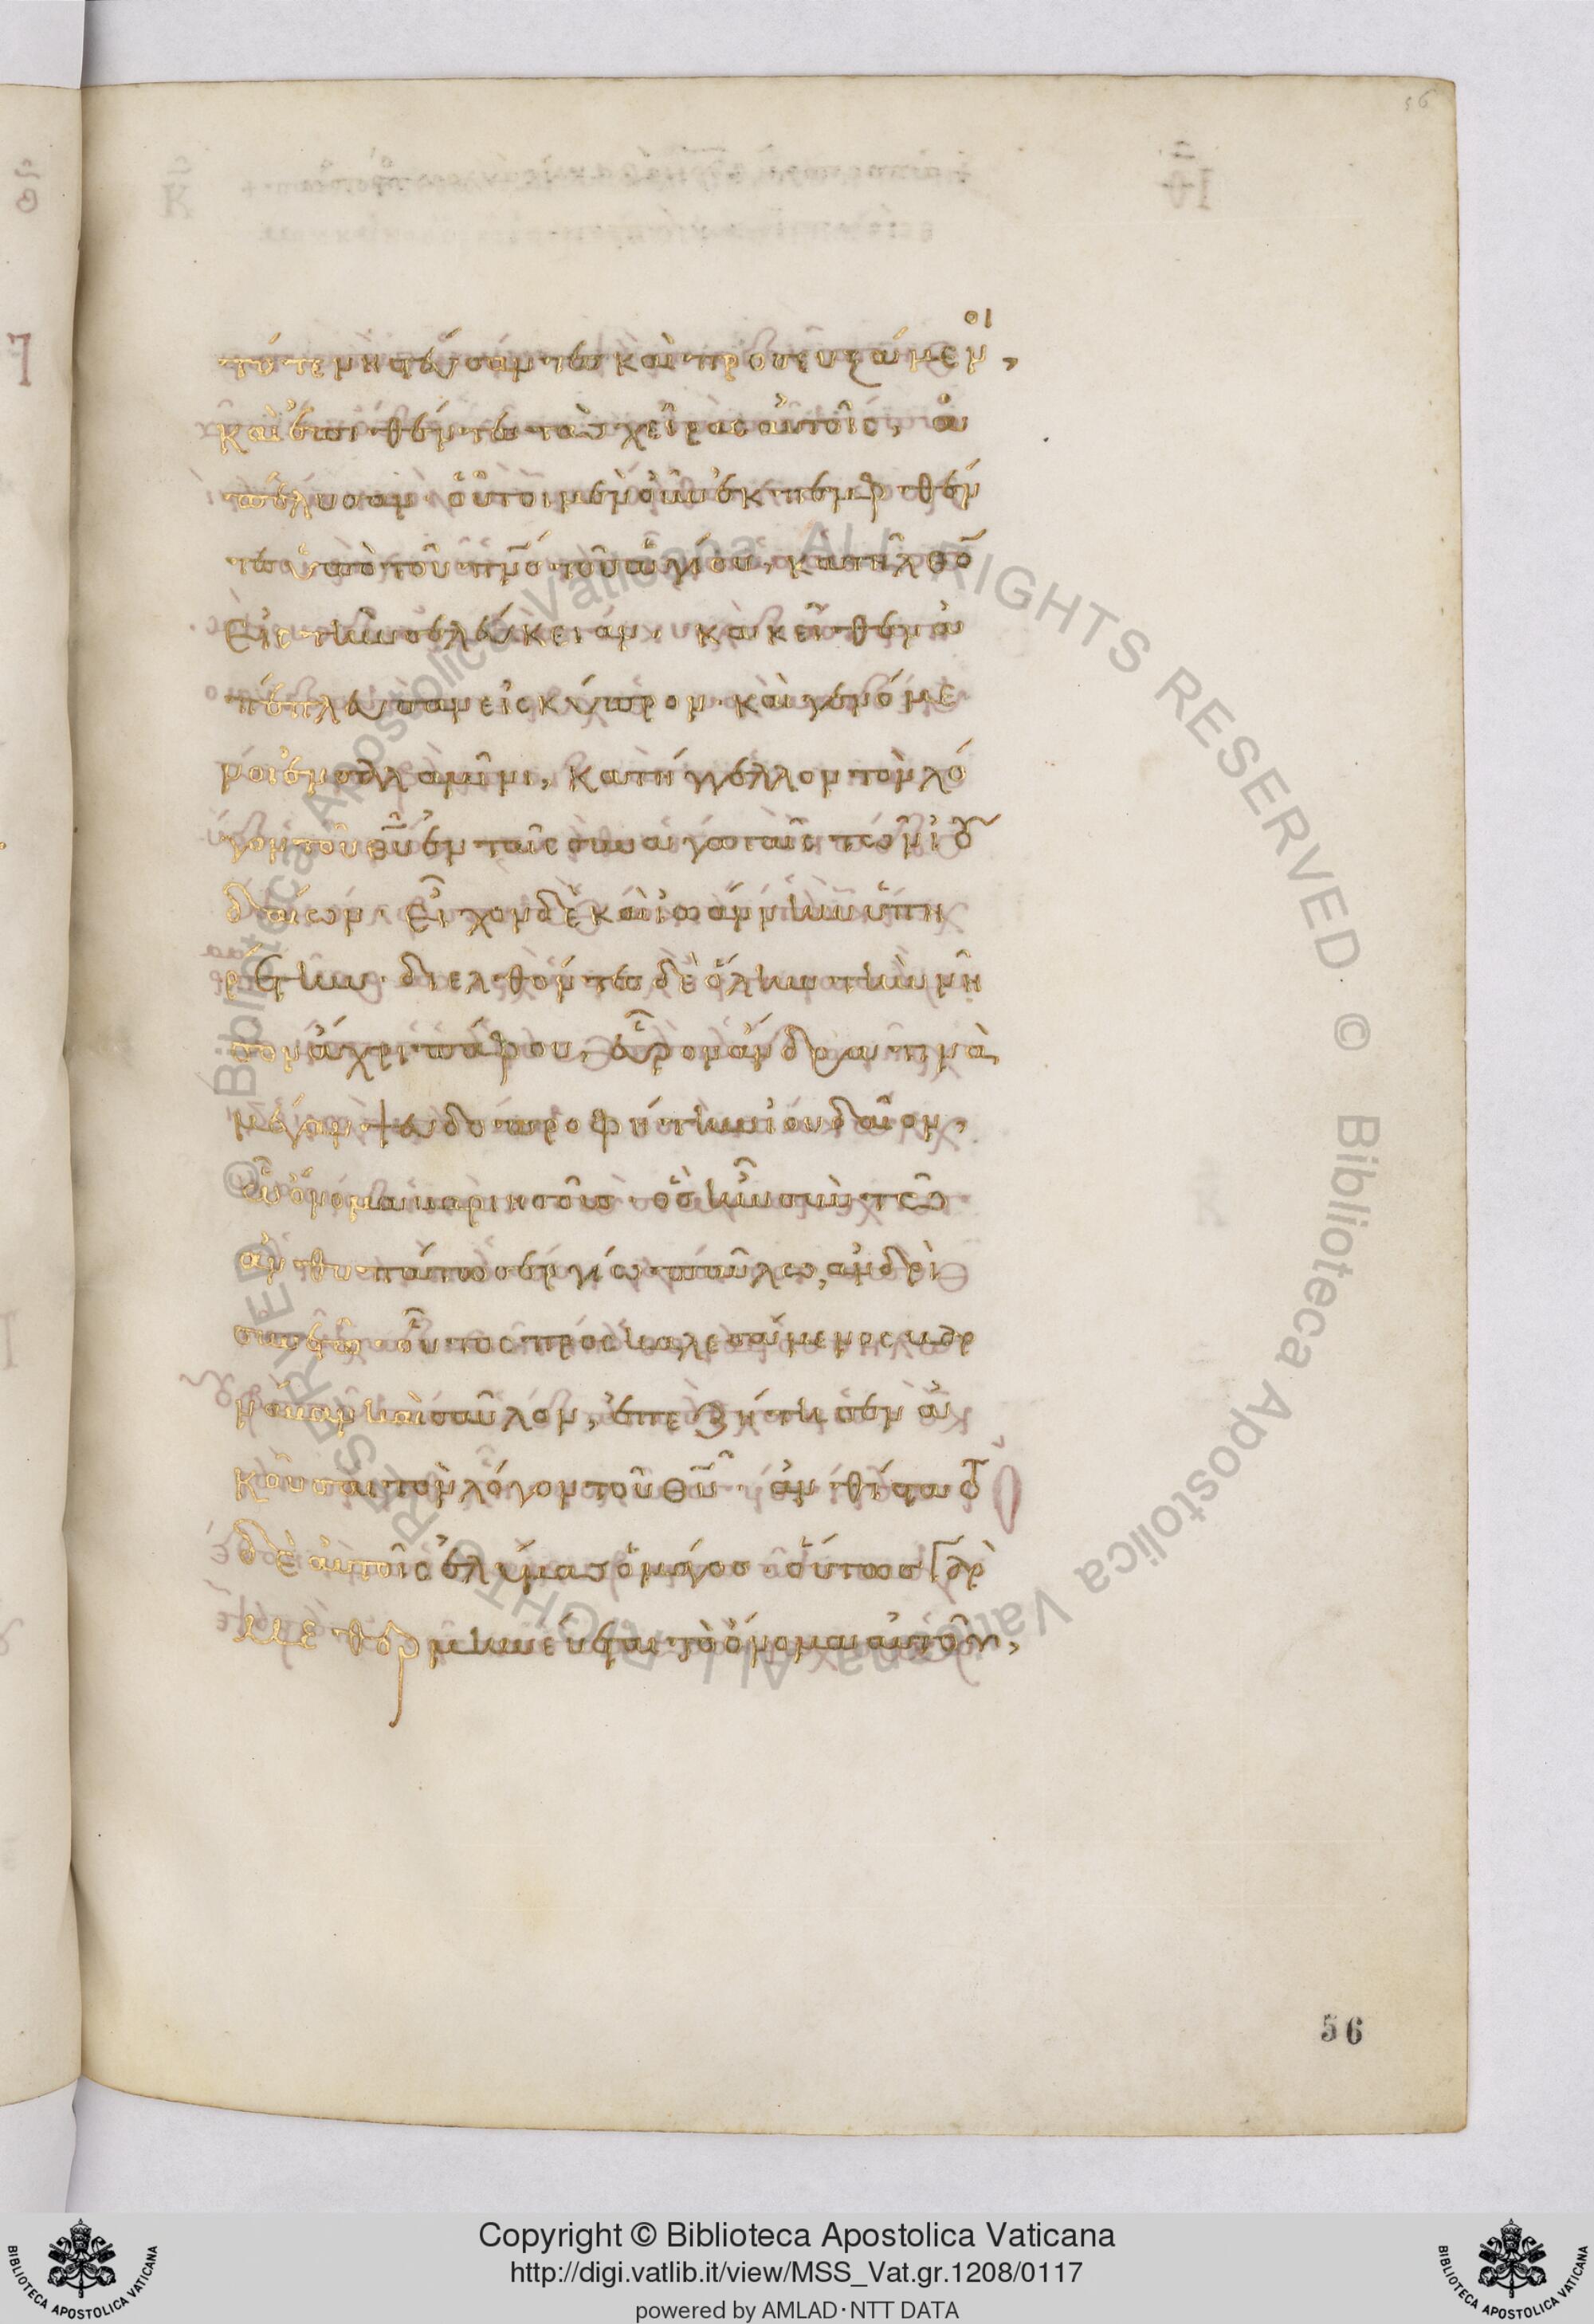 56
τότε νηστεύσαντες καὶ προσευξάμενοι,
καὶ ἐπιθέντες τὰς χεῖρας αὐτοῖς, ἀ
πέλυσαν. οὗτοι μὲν οὖν ἐκπεμφθέν
τες ὑπὸ τοῦ πν̅σ τοῦ ἁγίου, κατῆλθο̅
εἰς τὴν σελεύκειαν. κἀκεῖθεν ἀ
πέπλευσαν εἰς κύπρον. καὶ γενόμε
νοι ἐν σαλαμῖνι, κατήγγελλον τὸν λό
γον τοῦ θ̅υ̅ ἐν ταῖς συναγωγαῖς τῶν ἰου
δαίων. εἶχον δὲ καὶ ἰωάννην ὑπη
ρέτην. διελθόντες δὲ ὅλην τὴν νῆ
σον ἄχρι πάφου, εὗρον ἄνδρα τινὰ
μάγον ψευδοπροφήτην ἰουδαῖον,
ᾧ ὄνομα βαριησοῦς. ὃς ἦν σὺν τῷ
ἀνθυπάτῳ σεργίῳ παύλῳ, ἀνδρὶ
συνετῷ. οὗτος προσκαλεσάμενος βαρ
νάβαν καὶ σαῦλον, ἐπεζήτησεν ἀ
κοῦσαι τὸν λόγον τοῦ θ̅υ̅. ἀνθίστατο
δὲ αὐτοῖς ἐλύμας ὁ μάγος. οὕτως γὰρ
μεθερμηνεύεται τὸ ὄνομα αὐτοῦ,
56
© Biblioteca Apostolica Vaticana ALL RIGHTS RESERVED © Biblioteca Apostolica Vaticana ALL RIGHTS RESERVED
Copyright © Biblioteca Apostolica Vaticana
http://digi.vatlib.it/view/MSS_Vat.gr.1208/0117
powered by AMLAD·NTT DATA
BIBLIOTECA APOSTOLICA VATICANA
BIBLIOTECA APOSTOLICA VATICANA